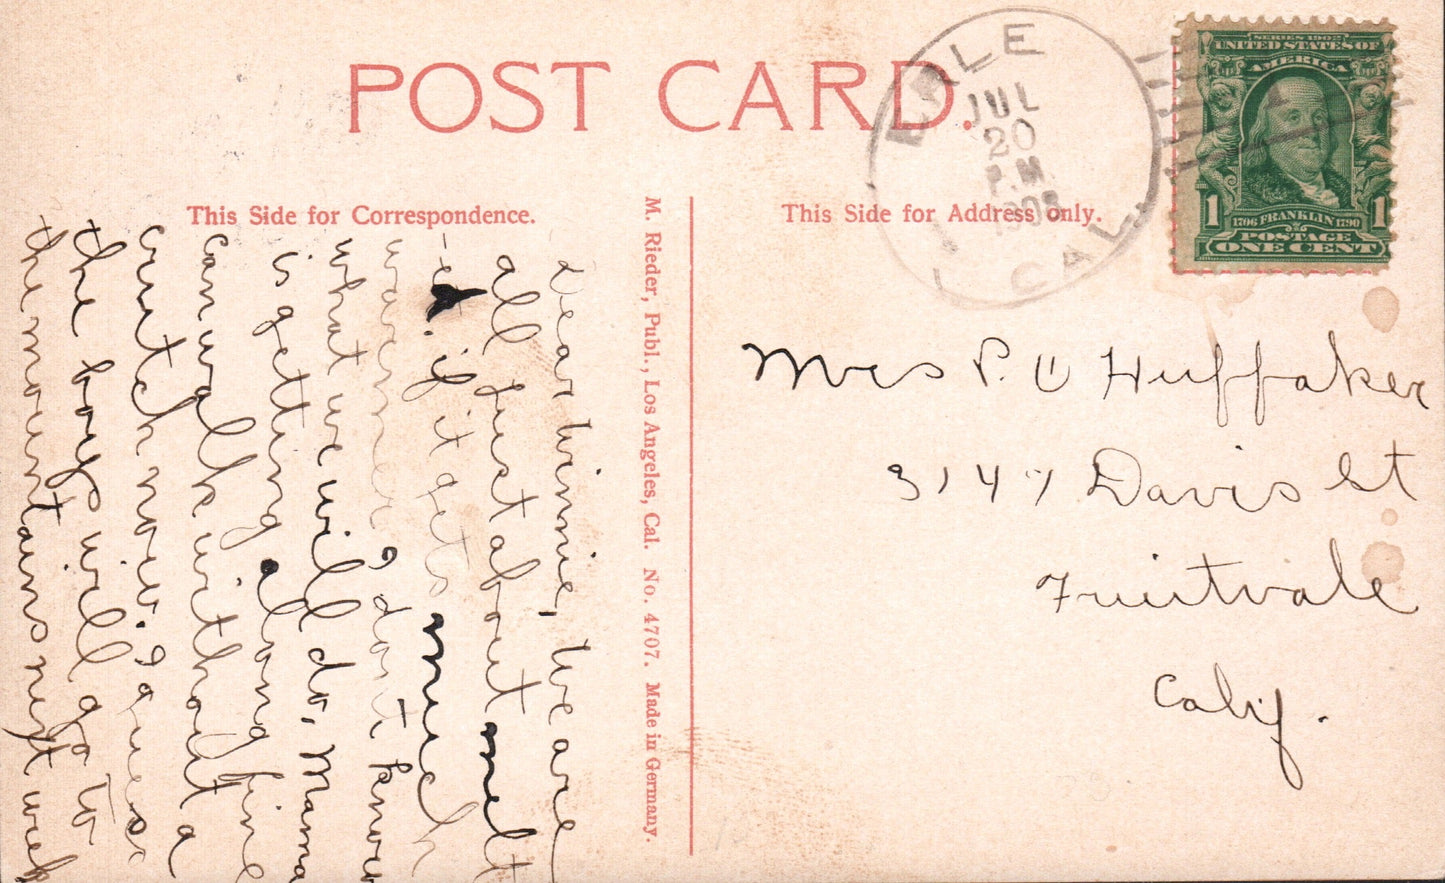 POST CARD.
This Side for Correspondence.
This Side for Address only.
JUL
20
P.M.
1908
CAL.
SERIES 1902
UNITED STATES OF
AMERICA
1 1706 FRANKLIN 1790 1
POSTAGE
ONE CENT
M. Rieder, Publ., Los Angeles, Cal. No. 4707. Made in Germany.
Dear Winnie, We are
all just about melt
-ed. if it gets much
warmer I dont know
what we will do, Mama
is getting along fine
can walk without a
crutch now. I guess
the boys will go to
the mountains next week
Mrs P. U Huffaker
3147 Davis St
Fruitvale
Calif.